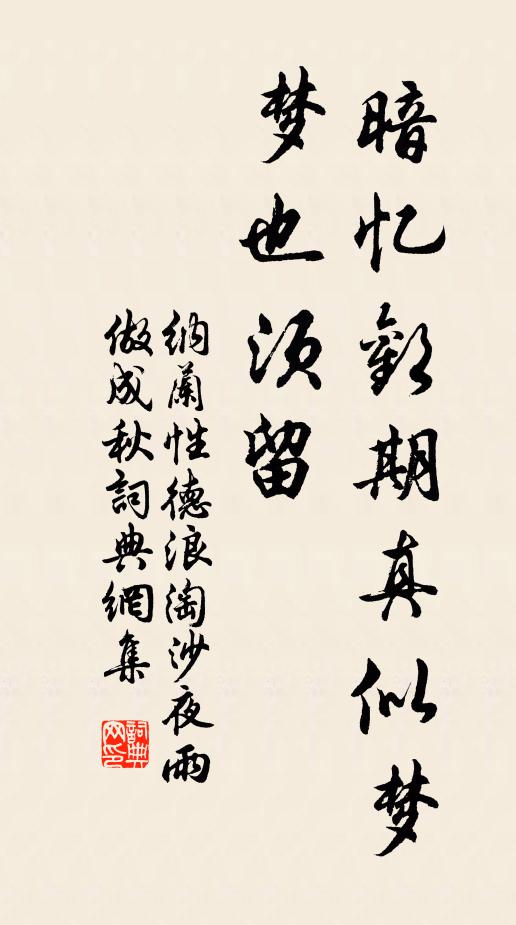 暗忆歡期真似梦
梦也须留
纳蘭性德浪淘沙夜雨
做成秋詞典網集
詞典
网印